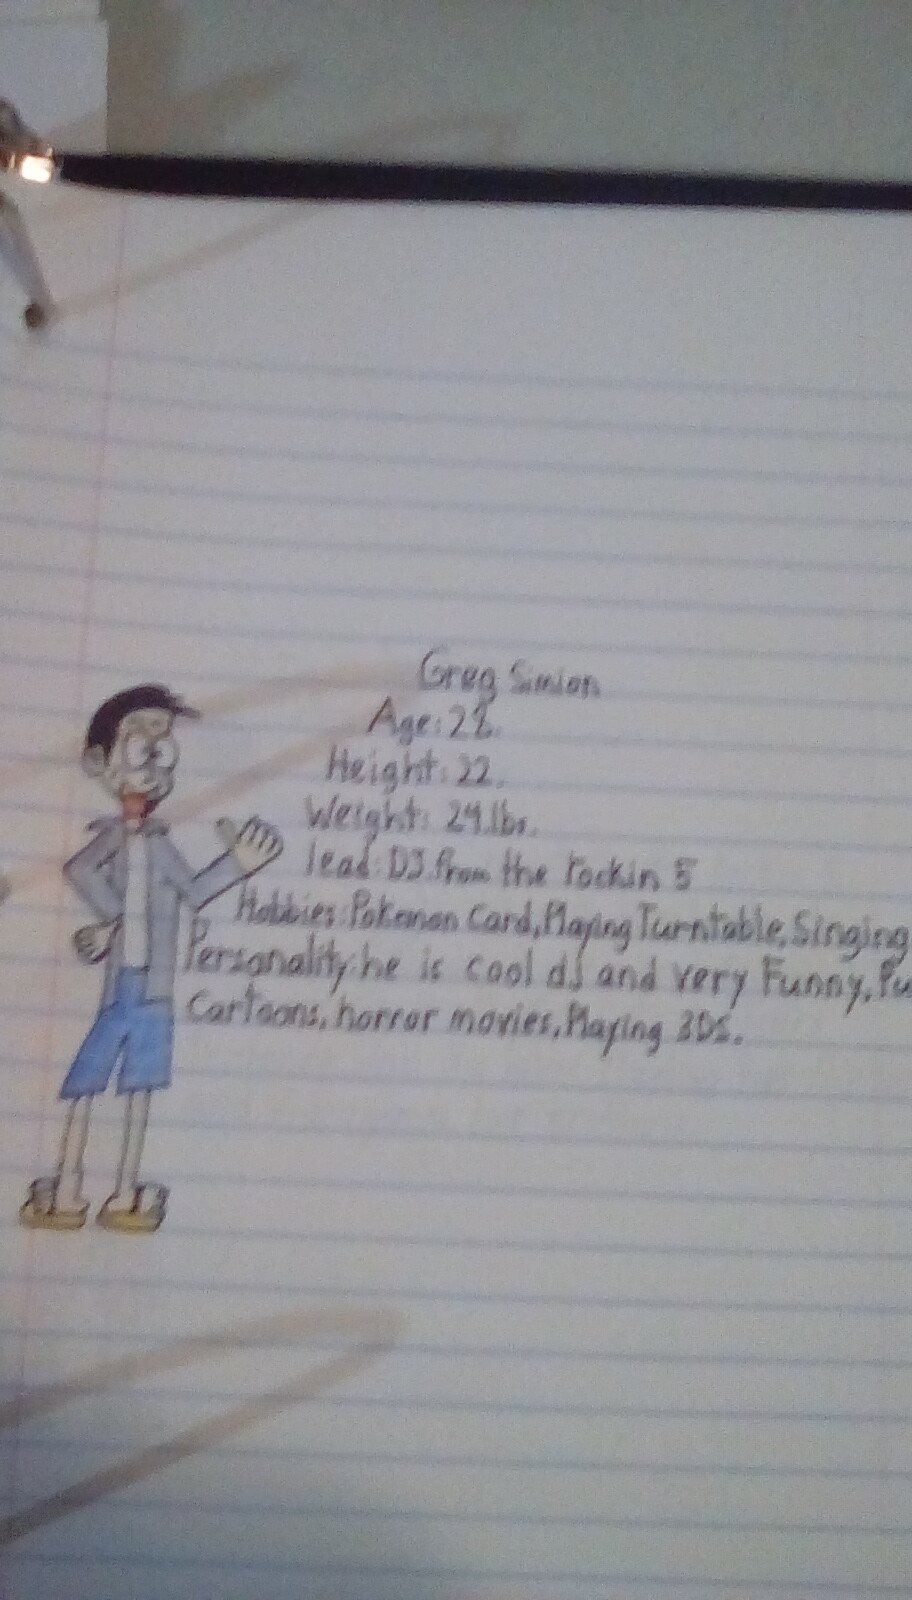 Greg Simion
Age: 28.
Height: 22.
Weight: 24.lbs.
lead: DJ from the rockin 5
Hobbies: Pokemon Card, Playing Turntable, Singing
Personality: he is cool dj and very Funny,
Cartoons, horror movies, Playing 3DS.